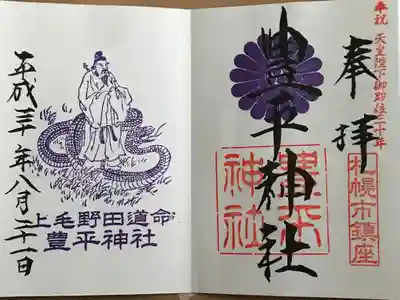 奉祝 天皇陛下御即位三十年
奉拝
札幌市鎮座
豊平神社
豊平
神社
上毛野田道命
豊平神社
平成三十年八月二十一日